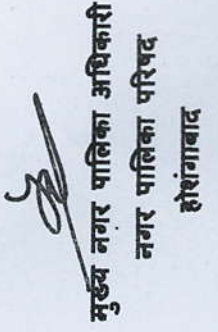 मुख्य नगर पालिका अधिकारी
नगर पालिका परिषद
होशंगाबाद